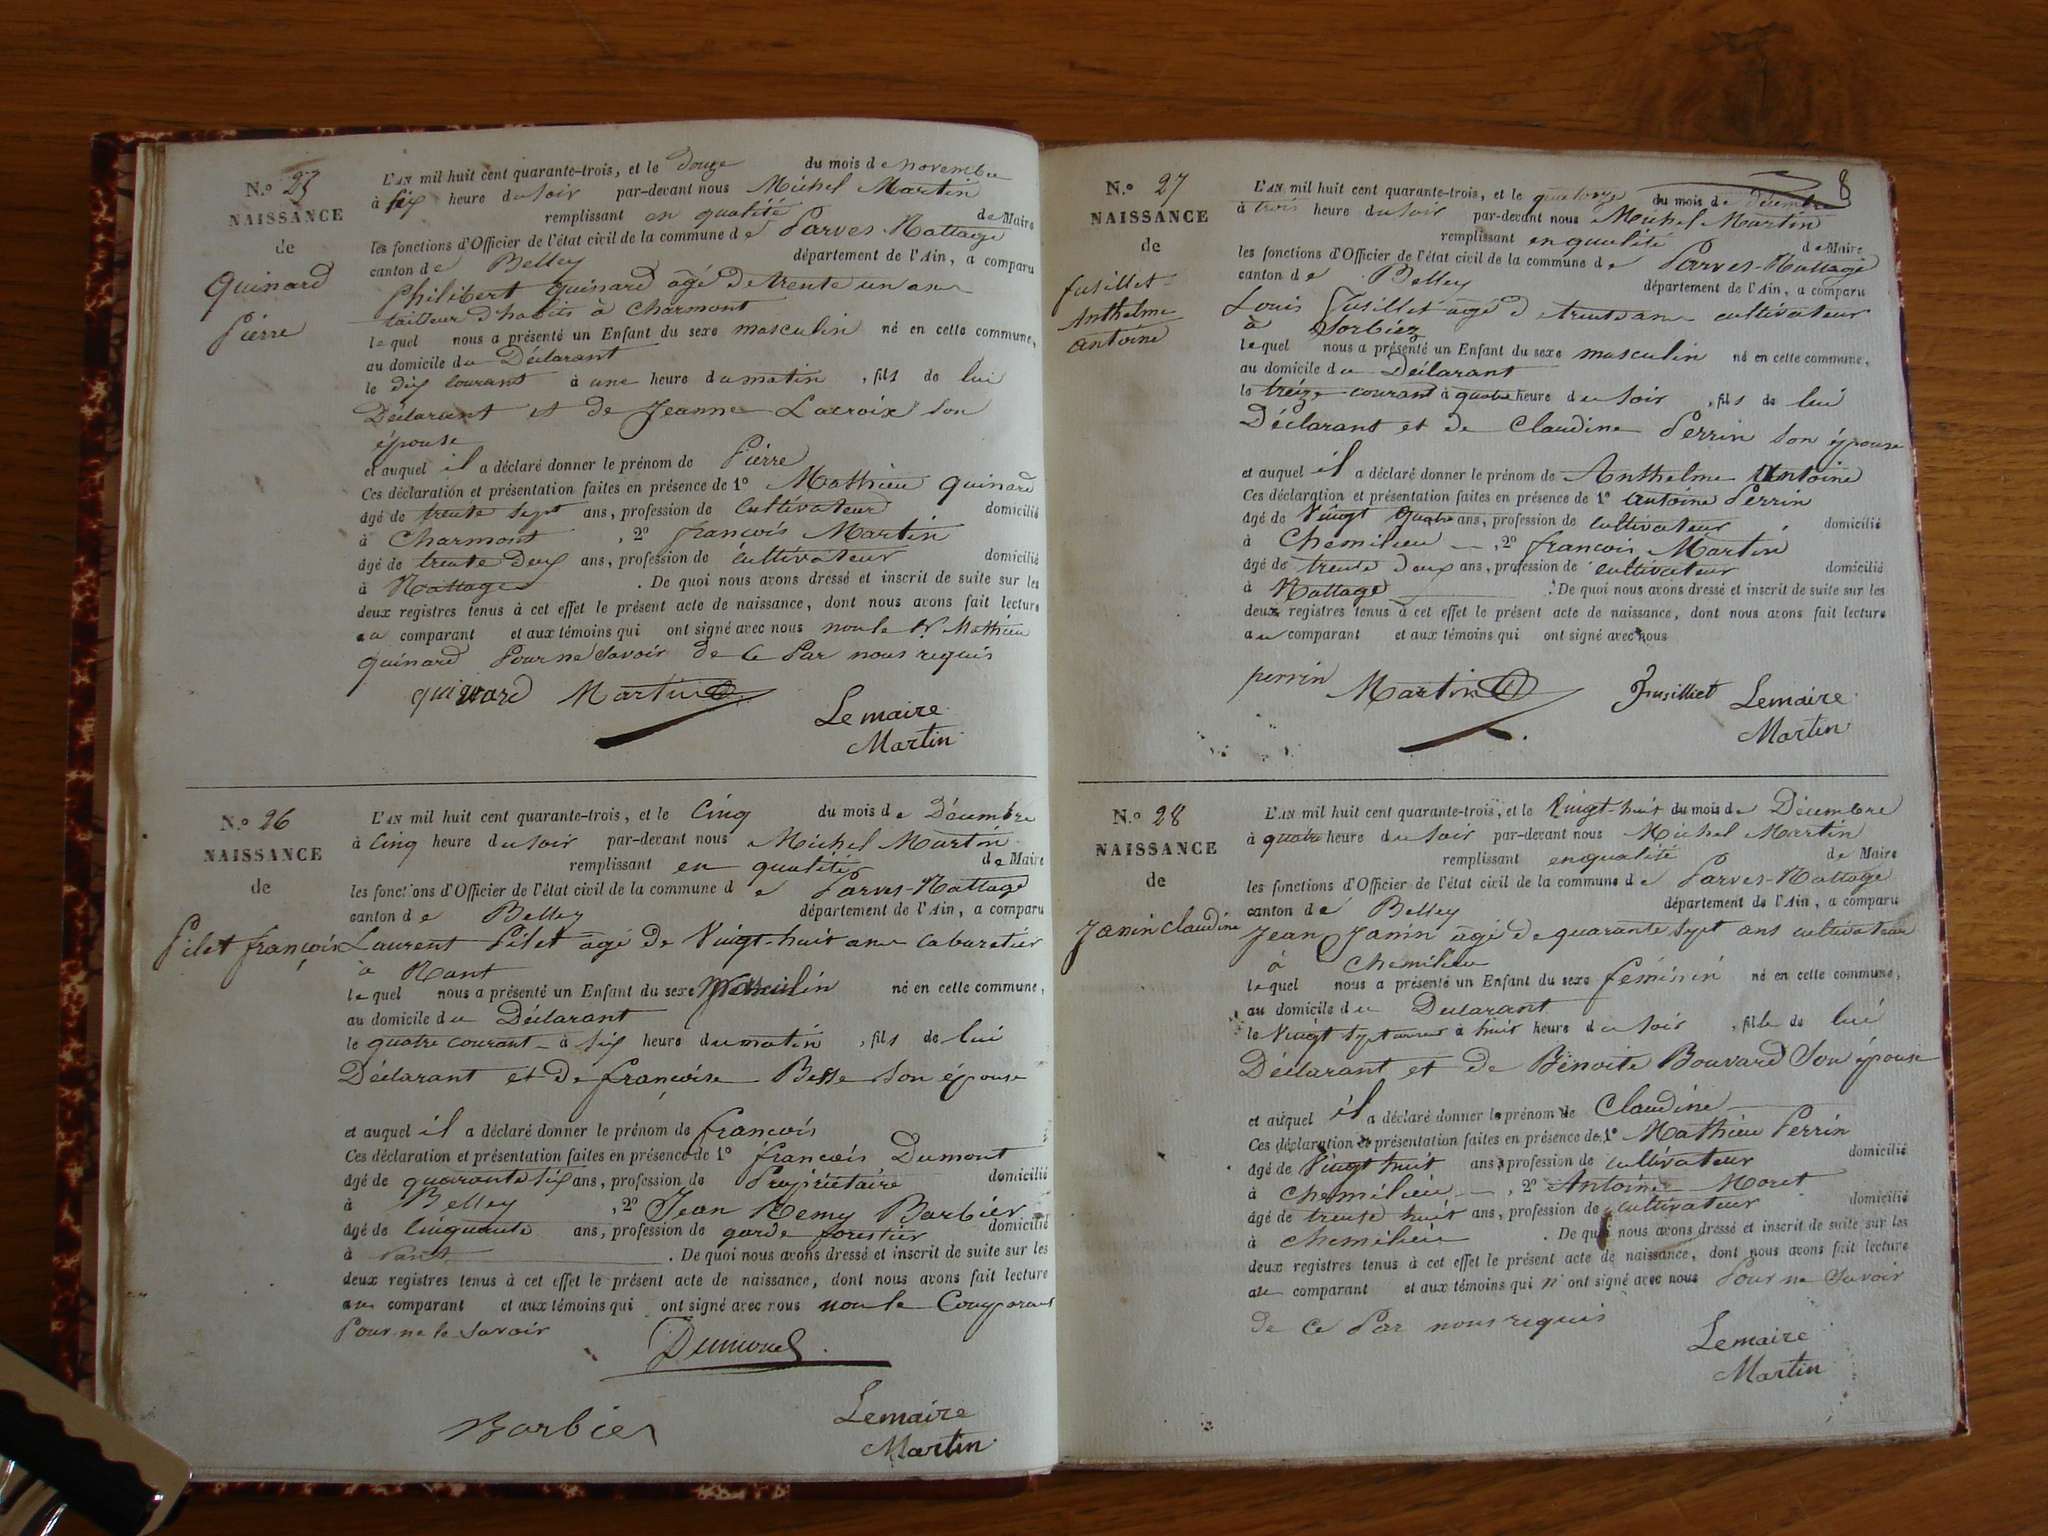 N.º 25
NAISSANCE
de
Quinard
Pierre
L'AN mil huit cent quarante-trois, et le douze du mois de novembre
à six heure du soir par-devant nous Michel Martin
remplissant en qualité de Maire
les fonctions d'Officier de l'état civil de la commune de Parves-Nattage
canton de Belley département de l'Ain, a comparu
Philibert Quinard agé de trente un ans
tailleur d'habits à Charmont
lequel nous a présenté un Enfant du sexe masculin né en cette commune,
au domicile du Déclarant
le dix courant à une heure du matin, fils de lui
Déclarant et de Jeanne Lacroix son
épouse
et auquel il a déclaré donner le prénom de Pierre
Ces déclaration et présentation faites en présence de 1º Mathieu Quinard
âgé de trente sept ans, profession de Cultivateur domicilié
à Charmont, 2º françois Martin
âgé de trente deux ans, profession de cultivateur domicilié
à Nattages. De quoi nous avons dressé et inscrit de suite sur les
deux registres tenus à cet effet le présent acte de naissance, dont nous avons fait lecture
au comparant et aux témoins qui ont signé avec nous non le Mathieu
Quinard Pour ne Savoir de Ce Par nous requis
quinard Martin
Lemaire
Martin
N.º 26
NAISSANCE
de
Pilet françois
L'AN mil huit cent quarante-trois, et le Cinq du mois de Décembre
à Cinq heure du soir par-devant nous Michel Martin
remplissant en qualité de Maire
les fonctions d'Officier de l'état civil de la commune de Parves-Nattage
canton de Belley département de l'Ain, a comparu
Laurent Pilet agé de Vingt-huit ans cabaretier
à Nant
lequel nous a présenté un Enfant du sexe Masculin né en cette commune,
au domicile du Déclarant
le quatre courant à six heure du matin, fils de lui
Déclarant et de françoise Besse son épouse
et auquel il a déclaré donner le prénom de françois
Ces déclaration et présentation faites en présence de 1º françois Dumont
âgé de quarante six ans, profession de Propriétaire domicilié
à Belley, 2º Jean Remy Barbier
âgé de Cinquante ans, profession de garde forestier domicilié
à Nant. De quoi nous avons dressé et inscrit de suite sur les
deux registres tenus à cet effet le présent acte de naissance, dont nous avons fait lecture
au comparant et aux témoins qui ont signé avec nous non le Comparant
Pour ne le Savoir
Dumont
Barbier
Lemaire
Martin
8
N.º 27
NAISSANCE
de
fusillet
Anthelme
antoine
L'AN mil huit cent quarante-trois, et le quatorze du mois de décembre
à trois heure du soir par-devant nous Michel Martin
remplissant en qualité de Maire
les fonctions d'Officier de l'état civil de la commune de Parves-Nattage
canton de Belley département de l'Ain, a comparu
Louis fusillet agé de trente ans cultivateur
à Sorbiez
lequel nous a présenté un Enfant du sexe masculin né en cette commune,
au domicile du Déclarant
le treize courant à quatre heure du soir, fils de lui
Déclarant et de Claudine Perrin son épouse
et auquel il a déclaré donner le prénom de Anthelme Antoine
Ces déclaration et présentation faites en présence de 1º antoine Perrin
âgé de Vingt quatre ans, profession de cultivateur domicilié
à Chemilieu, 2º françois Martin
âgé de trente deux ans, profession de cultivateur domicilié
à Nattage. De quoi nous avons dressé et inscrit de suite sur les
deux registres tenus à cet effet le présent acte de naissance, dont nous avons fait lecture
au comparant et aux témoins qui ont signé avec nous
perrin Martin fusilliet Lemaire
Martin
N.º 28
NAISSANCE
de
Janin Claudine
L'AN mil huit cent quarante-trois, et le Vingt-huit du mois de Décembre
à quatre heure du soir par-devant nous Michel Martin
remplissant en qualité de Maire
les fonctions d'Officier de l'état civil de la commune de Parves-Nattage
canton de Belley département de l'Ain, a comparu
Jean Janin agé de quarante sept ans cultivateur
à Chemilieu
lequel nous a présenté un Enfant du sexe féminin né en cette commune,
au domicile du Déclarant
le Vingt sept courant à huit heure du soir, fille de lui
Déclarant et de Benoite Bouvard Son épouse
et auquel il a déclaré donner le prénom de Claudine
Ces déclaration et présentation faites en présence de 1º Mathieu Perrin
âgé de Vingt huit ans, profession de cultivateur domicilié
à Chemilieu, 2º Antoine Moret
âgé de trente huit ans, profession de cultivateur domicilié
à Chemilieu. De quoi nous avons dressé et inscrit de suite sur les
deux registres tenus à cet effet le présent acte de naissance, dont nous avons fait lecture
au comparant et aux témoins qui n'ont signé avec nous Pour ne Savoir
de Ce Par nous requis
Lemaire
Martin